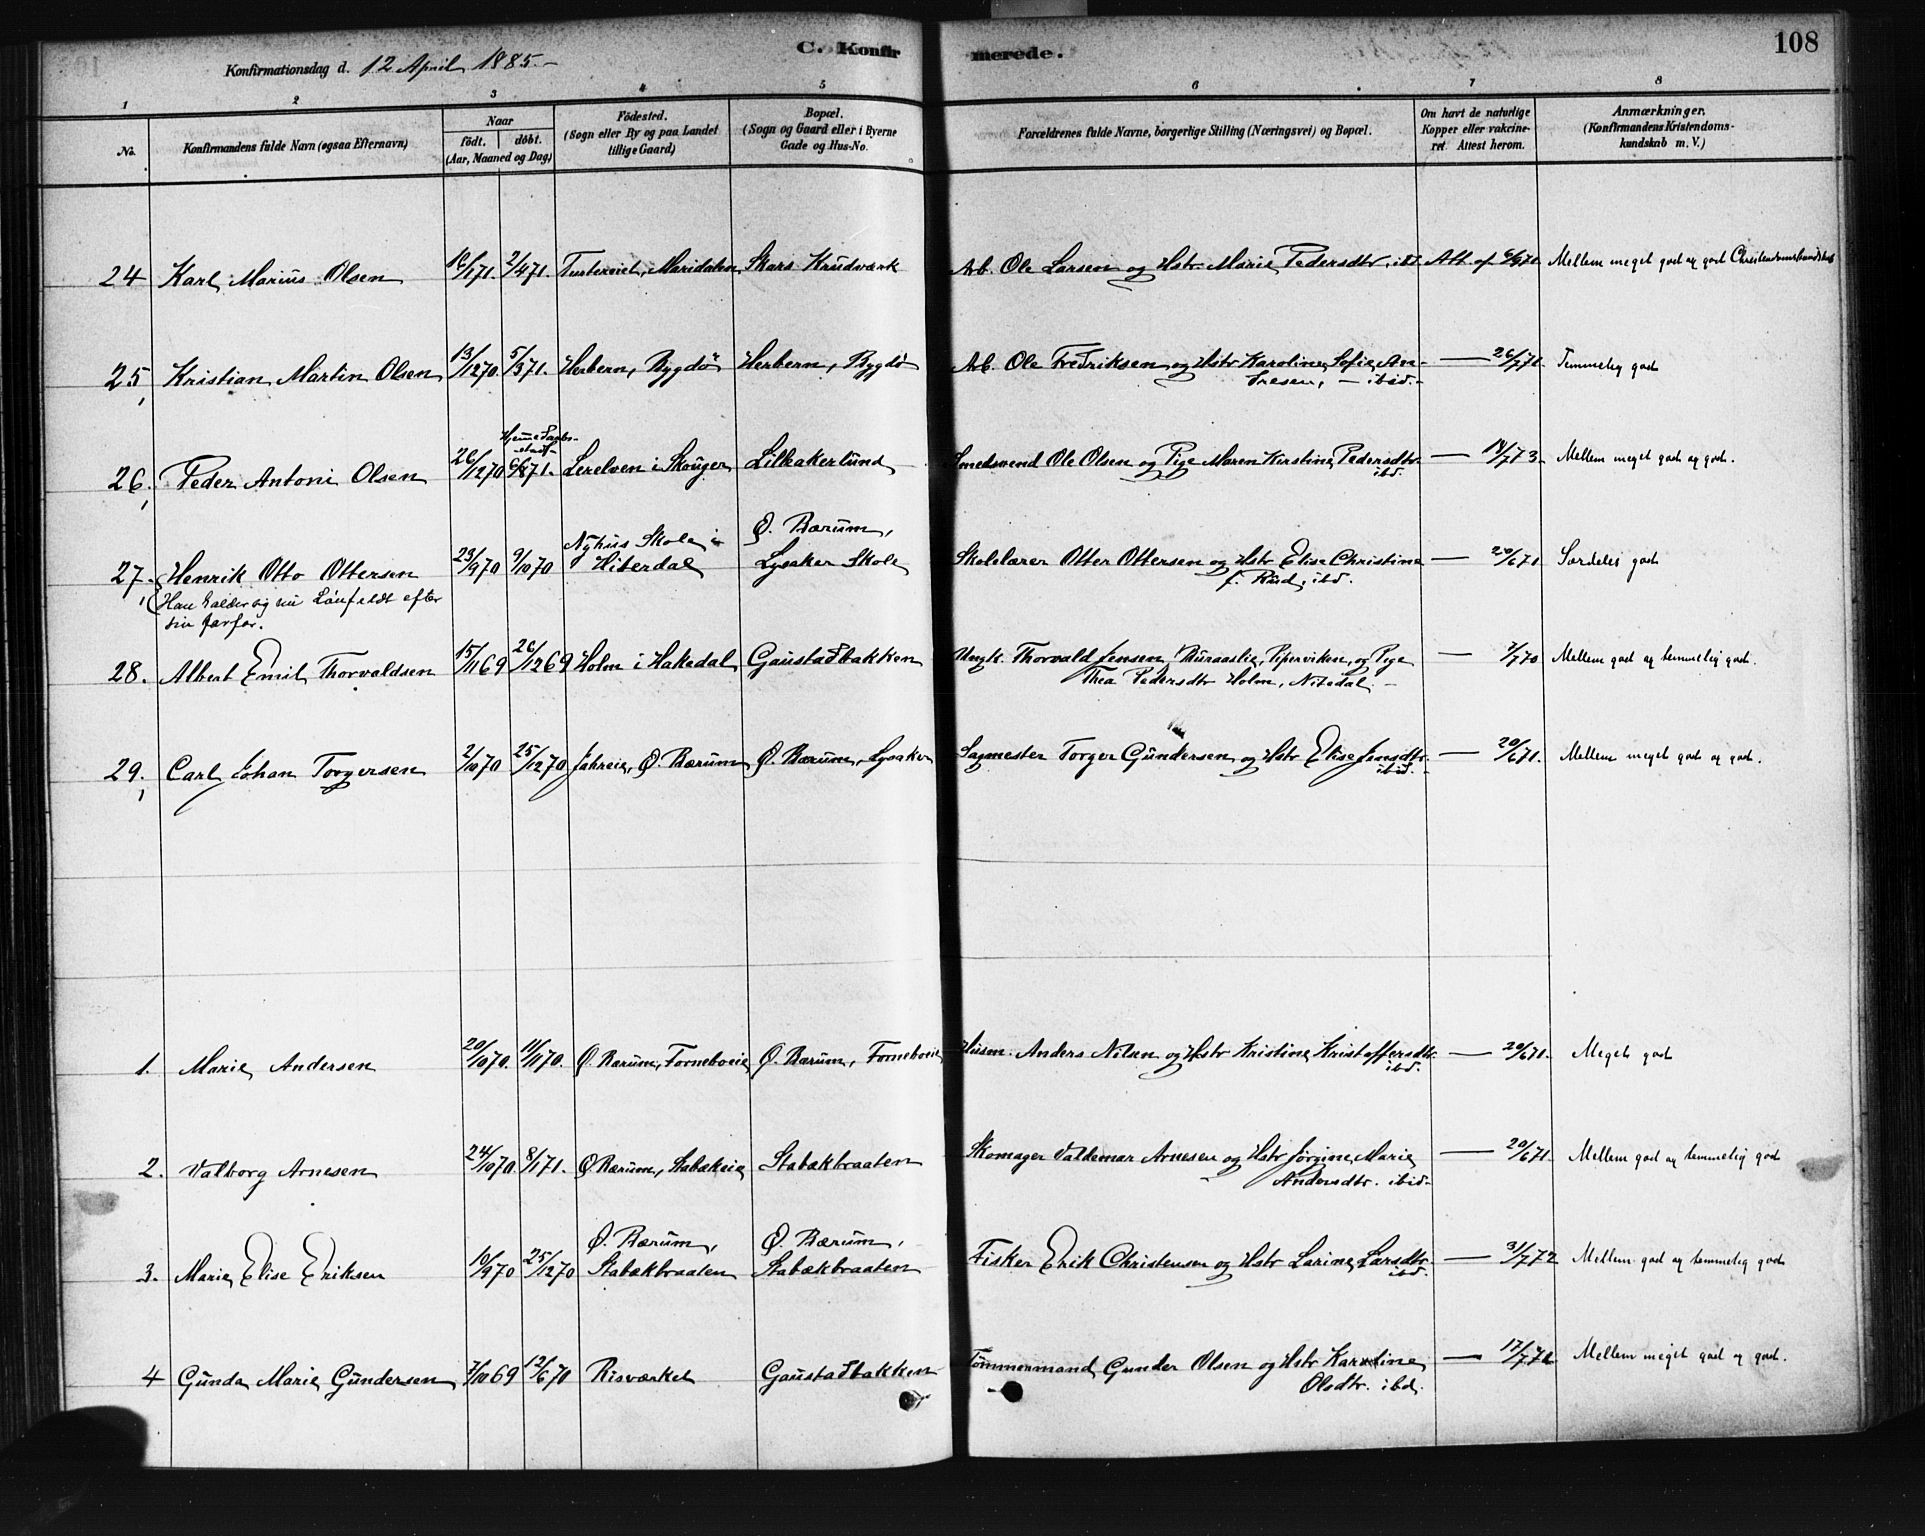 C. Konfirmerede.
108
Konfirmationsdag d. 12 April 1885.-
1 2 3 4 5 6 7 8
No.
Konfirmandens fulde Navn (ogsaa Efternavn)
Naar
födt. döbt.
(Aar, Maaned og Dag)
Födested.
(Sogn eller By og paa Landet
tillige Gaard)
Bopæl.
(Sogn og Gaard eller i Byerne
Gade og Hus-No.
Forældrenes fulde Navne, borgerlige Stilling (Næringsvei) og Bopæl.
Om havt de naturlige
Kopper eller vakcine-
ret. Attest herom.
Anmærkninger.
(Konfirmandens Kristendoms-
kundskab m. V.)
24 Karl Marius Olsen 16/1 71. 2/4 71. Maridalen Skars Krudværk Arb. Ole Larsen og Hstr. Marie Pedersdtr, ibd. Att. af 71 Mellem meget god og god Christendomskundskab
25, Kristian Martin Olsen 13/12 70. 5/3 71. Herbern, Bygdö Herbern, Bygdö Arb. Ole Fredriksen og Hstr Karoline Sofie An-
dresen, - ibid.- — 26/7 71. Temmelig god
Hjemmedøbt-
26, Peder Antoni Olsen 26/12 70 6/8 71. Lerelven i Skouger Lilleakerlund Smedsvend Ole Olsen og Pige Maren Kirstine Pedersdtr.
ibd. — 14/7 73. Mellem meget god og god.
27, Henrik Otto Ottersen 23/9 70 9/10 70 Nyhus Skole i
Hiterdal Ø. Bærum,
Lysaker Skole Skolelærer Otter Ottersen og Hstr Elise Christine
f. Rud, ibd. — 20/6 71. Særdeles god
Han kalder sig nu Lÿnfeldt efter
sin farfar.
28. Albert Emil Thorvaldsen 15/11 69 26/12 69 Holm i Hakedal Gaustadbakken Ungk. Thorvald Jensen Pipervigen, og Pige
Thea Pedersdtr Holm, Nitedal.- — 7/7 70 Mellem god og temmelig god.
29, Carl Johan Torgersen 2/10 70 25/12 70 Jahreie, Ø. Bærum Ø. Bærum, Lysaker Sagmester Torger Gundersen og Hstr Elise Jensdtr.
ibid.- — 20/6 71. Mellem meget god og god.
1. Marie Andersen 20/10 70. 11/11 70. Ø. Bærum, Forneboeie Ø. Bærum, Forneboeie Husm. Anders Nilsen og Hstr Kristine Kristoffersdtr.
ibd. — 20/6 71. Meget god
2. Valborg Arnesen 24/10 70. 8/1 71. Ø Bærum, Stabækeie Stabækbraaten Skomager Valdemar Arnesen og Hstr Jørgine Marie
Andersdtr. ibid- — 20/6 71. Mellem god og temmelig god
3. Marie Elise Eriksen 10/9 70 25/12 70 Ø. Bærum,
Stabækbraaten Ø. Bærum,
Stabækbraaten Fisker Erik Christensen og Hstr Larine Larsdtr.
ibd. — 31/7 72 Mellem god og temmelig god
4 Gunda Marie Gundersen 7/10 69 12/6 70 Risværket Gaustadbakken Tømmermand Gunder Olsen og Hstr Karoline
Olsdtr. ibd. — 17/7 72 Mellem meget god og god.